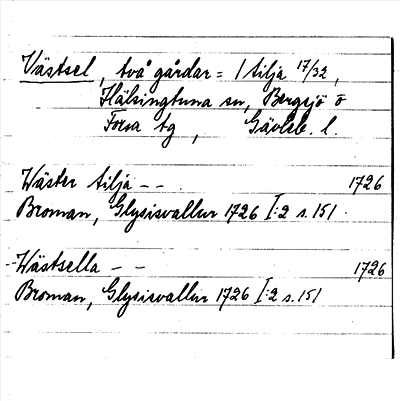 Västsel, två gårdar = 1 tilja 17/32,
Hälsingtuna sn, Bergsjö o
Forsa tg, Gävleb. l.
Wäster tilja - - 1726
Broman, Glysisvallur 1726 I:2 s. 151.
Wästsella - - 1726
Broman, Glysisvallur 1726 I:2 s. 151